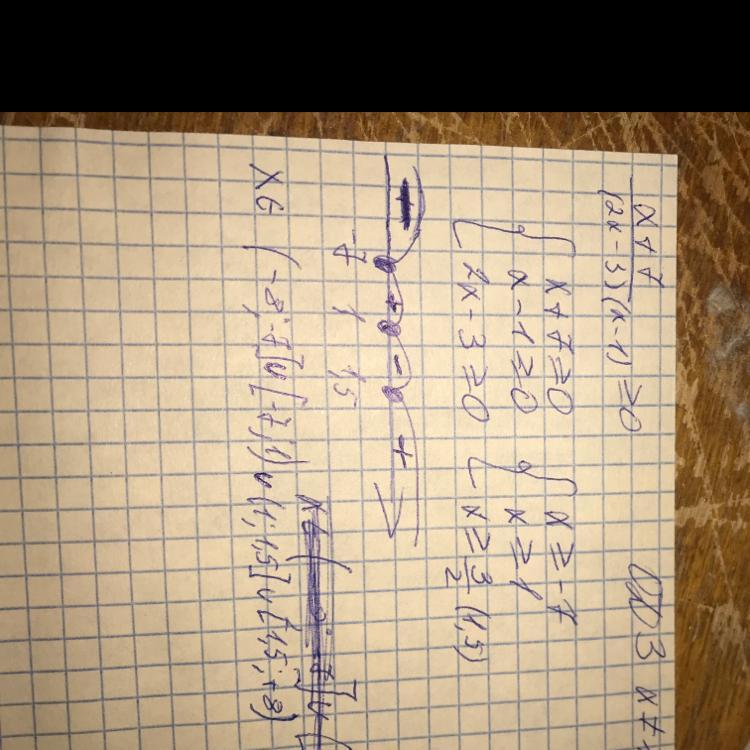 x + 7
(2x - 3)(x - 1) ≥ 0
ОДЗ x ≠
{ x + 7 ≥ 0 { x ≥ -7
x - 1 ≥ 0 x ≥ 1
2x - 3 ≥ 0 x ≥ 3/2 (1,5)
+ - +
-7 1 1,5
x ∈ (-∞; -7] ∪ [-7; 1) ∪ (1; 1,5] ∪ [1,5; +∞)